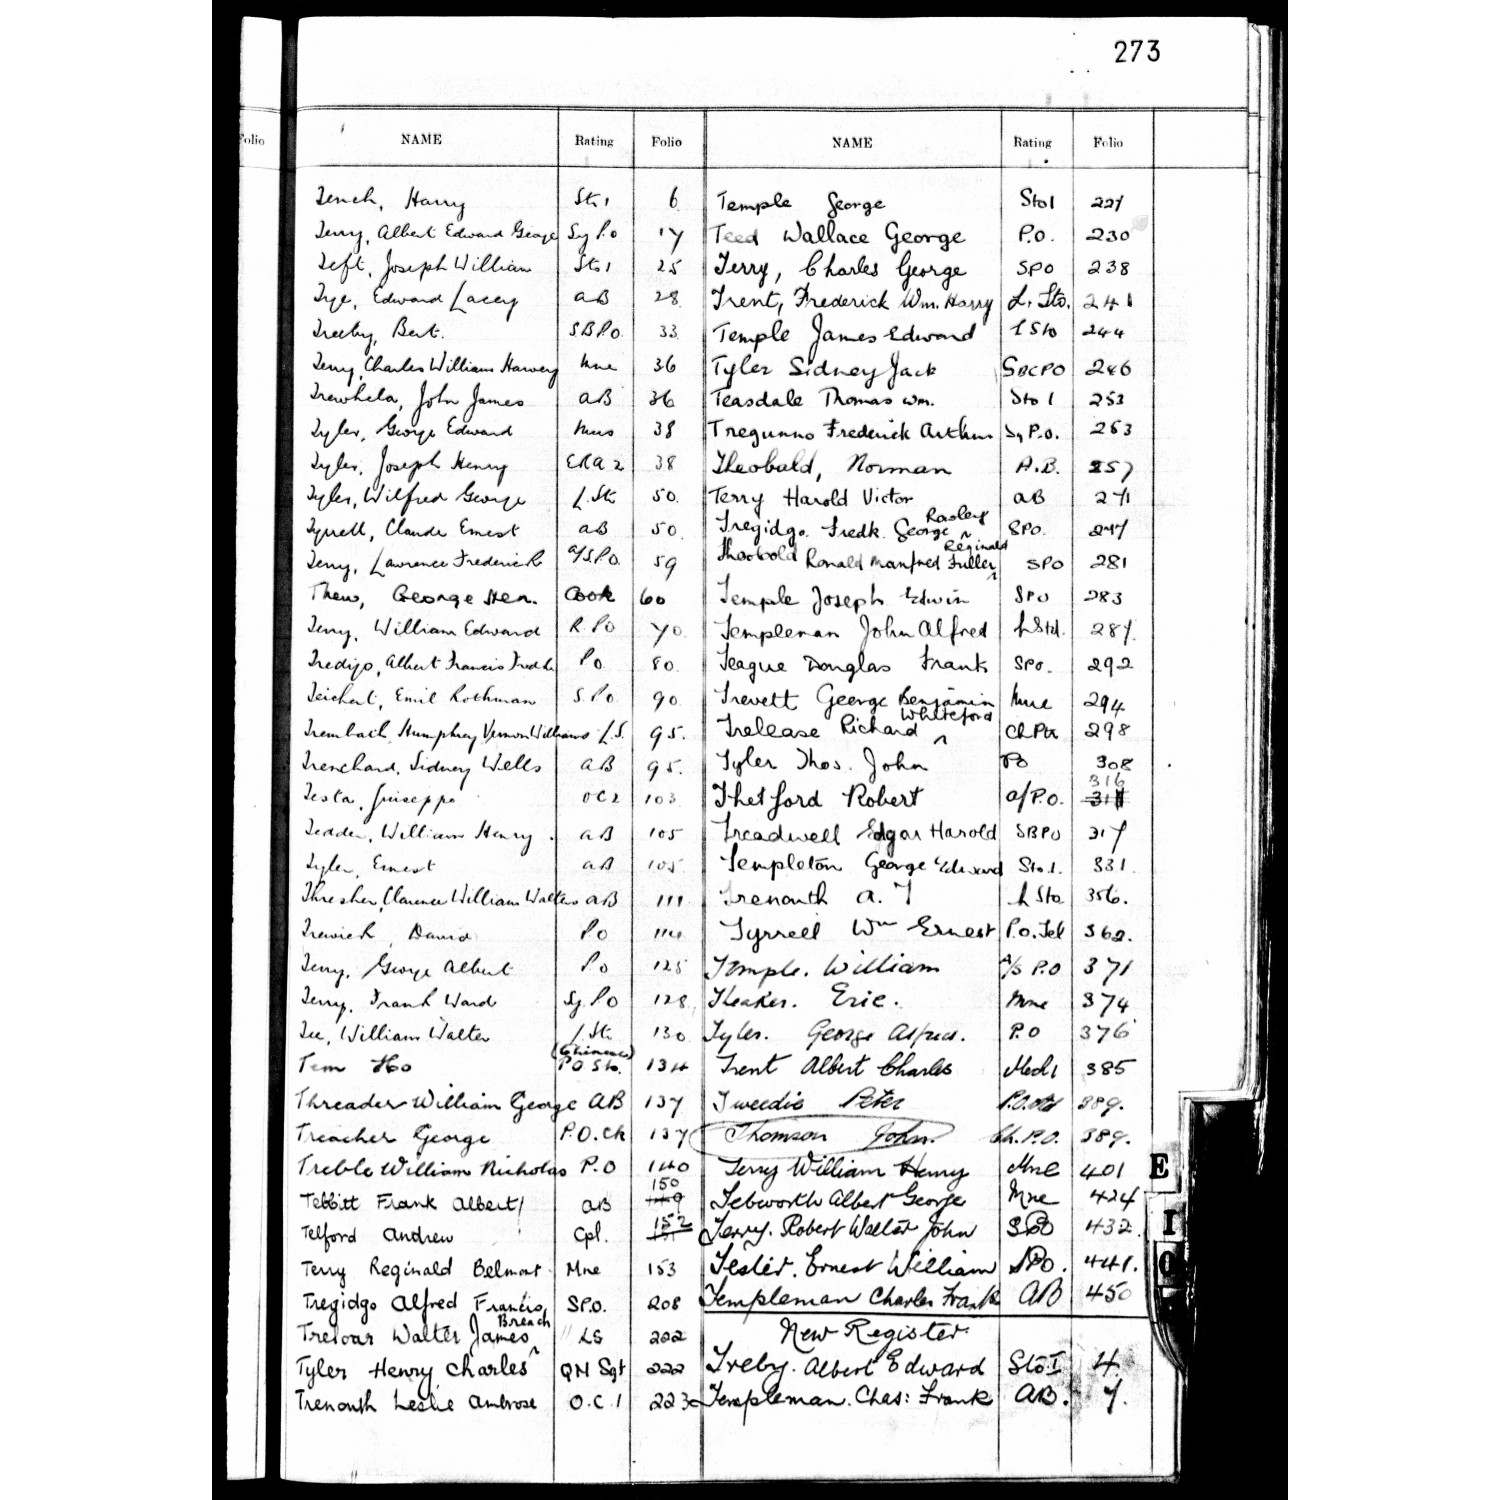 273
Folio
NAME Rating Folio
Tench, Harry Sto 1 6
Terry, Albert Edward George Sy P.O 17
Teft, Joseph William Sto 1 25
Tye, Edward Lacey AB 28
Treeby, Bert. S.B.P.O. 33
Terry, Charles William Harvey Mne 36
Trewhela, John James AB 36
Tyler, George Edward Mus 38
Tyler, Joseph Henry ERA 2 38
Tyler, Wilfred George L. Sto 50.
Tyrrell, Claude Ernest AB 50.
Terry, Lawrence Frederick A/S.P.O. 59
Thew, George Hen. Cook 60
Terry, William Edward R.PO 70.
Tredigo, Albert Francis Fredk PO. 80.
Teichert, Emil Rothman S.P.O. 90.
Trembath, Humphrey Vernon Williams L.S. 95.
Trenchard, Sidney Wells AB 95.
Testa, Giuseppe OC2 103.
Tedder, William Henry. AB 105
Tyler, Ernest AB 105.
Thresher, Clarence William Walters AB 111
Trewick, David P.O 114
Terry, George Albert P.O 125
Terry, Frank Ward Sy. P.O 128
Tee, William Walter L. Sto 130
Tem Ho (Chinese) PO Sto. 134
Threader William George AB 137
Treacher George P.O. Ck 137
Treble William Nicholas P.O 140
Tebbitt Frank Albert AB 149 150
Telford Andrew Cpl. 151 152
Terry Reginald Belmont Mne 153
Tregidgo Alfred Francis, SPO. 208
Trevoar Walter James Breach LS 222
Tyler Henry Charles QM Sgt 222
Trenouth Leslie Ambrose O.C.1 223
NAME Rating Folio
Temple George Sto 1 227
Teed Wallace George P.O. 230
Terry, Charles George SPO 238
Trent, Frederick Wm. Harry L. Sto. 241
Temple James Edward L Sto 244
Tyler Sidney Jack SBCPO 246
Teasdale Thomas Wm. Sto 1 253
Tregunno Frederick Arthur Sy P.O. 253
Theobald, Norman A.B. 257
Terry Harold Victor AB 271
Tregidgo. Fredk. George Rasley SPO. 277
Theobold Ronald Manfred Fuller Reginald SPO 281
Temple Joseph Edwin SPO 283
Templeman John Alfred L Sto. 287.
Teague Douglas Frank SPO. 292
Trevett George Benjamin Mne 294
Trelease Richard Whiteford Ch Ptr 298
Tyler Thos. John PO 308
Thetford Robert A/P.O. 316
Treadwell Edgar Harold SBPO 317
Templeton George Edward Sto. 1. 331.
Trenouth A. J L Sto 356.
Tyrrell Wm Ernest P.O. Tel 362.
Temple. William A/S P.O 371
Theaker. Eric. Mne 374
Tyler. George Alfred. P.O 376
Trent Albert Charles Mech 1 385
Tweedie Peter P.O. 389.
Thomson John. Ch. P.O. 389.
Terry William Henry Mne 401
Tebworth Albert George Mne 424
Terry. Robert Walter John SPO 432.
Tester. Ernest William SPO. 441.
Templeman Charles Frank AB 450
New Register
Treby. Albert Edward Sto I 4.
Templeman. Chas: Frank AB. 7.
E
I
O